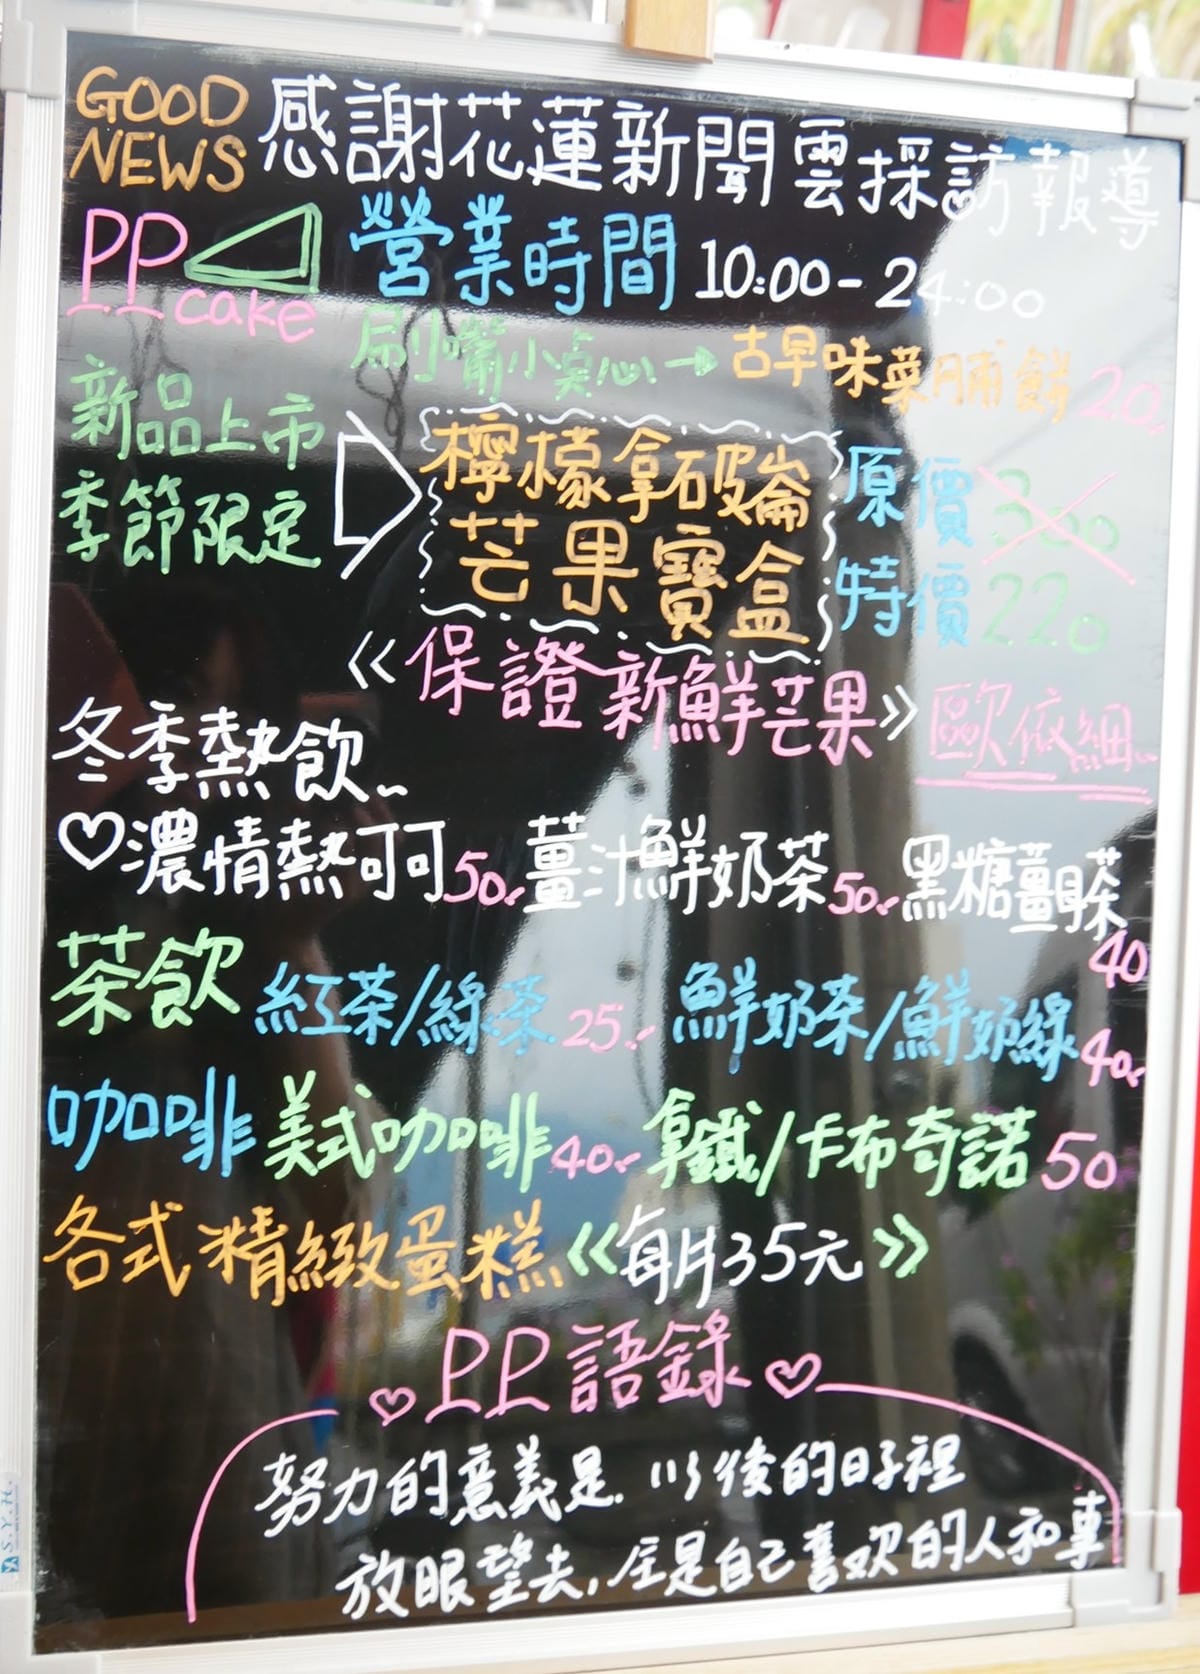 GOOD NEWS 感謝花蓮新聞雲採訪報導
PP cake 營業時間 10:00-24:00
刷嘴小點心→古早味菜脯餅 20.
新品上市
季節限定
檸檬拿破崙
芒果寶盒
原價 300
特價 220
《保證新鮮芒果》歐依細..
冬季熱飲..
♡濃情熱可可50.薑汁鮮奶茶50.黑糖薑母茶40
茶飲 紅茶/綠茶 25. 鮮奶茶/鮮奶綠40.
咖啡 美式咖啡40. 拿鐵/卡布奇諾50
各式精緻蛋糕《每片35元》
♡PP語錄♡
努力的意義是.以後的日子裡
放眼望去,全是自己喜歡的人和事
S.Y.H.